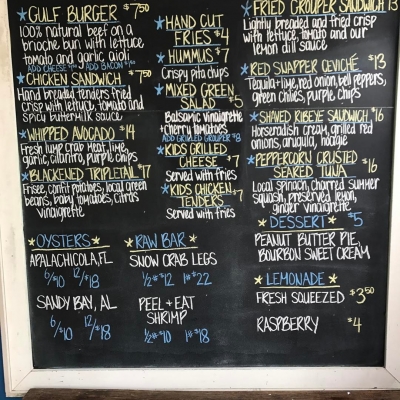 *GULF BURGER $7.50
100% natural beef on a
brioche bun with lettuce
tomato and garlic aioli.
*CHICKEN SANDWICH $7.50
Hand breaded tenders fried
crisp with lettuce, tomato and
spicy buttermilk sauce
*WHIPPED AVOCADO $14
Fresh lump crab meat, lime,
garlic, cilantro, purple chips
*BLACKENED TRIPLETAIL $17
Frisee, confit potatoes, local green
beans, baby tomatoes, citrus
vinaigrette
*HAND CUT
FRIES $4
*HUMMUS $7
Crispy pita chips
*MIXED GREEN
SALAD $5
Balsamic vinaigrette
+cherry tomatoes
ADD GRILLED GROUPER $8
*KIDS GRILLED
CHEESE $7
Served with fries
*KIDS CHICKEN
TENDERS $7
Served with fries
*FRIED GROUPER SANDWICH 13
Lightly breaded and fried crisp
with lettuce, tomato and our
lemon dill sauce
*RED SNAPPER CEVICHE $13
Tequila+lime, red onion, bell peppers,
green chilies, purple chips
*SHAVED RIBEYE SANDWICH $16
Horseradish cream, grilled red
onions, arugula, hoagie
*PEPPERCORN CRUSTED
SEARED TUNA $16
Local spinach, charred summer
squash, preserved lemon,
ginger vinaigrette
*DESSERT* $5
PEANUT BUTTER PIE,
BOURBON SWEET CREAM
*OYSTERS*
APALACHICOLA, FL
6/$10 12/$18
SANDY BAY, AL
6/$10 12/$18
*RAW BAR*
SNOW CRAB LEGS
1/2# $12 1# $22
PEEL + EAT
SHRIMP
1/2# $10 1# $18
*LEMONADE*
FRESH SQUEEZED $3.50
RASPBERRY $4